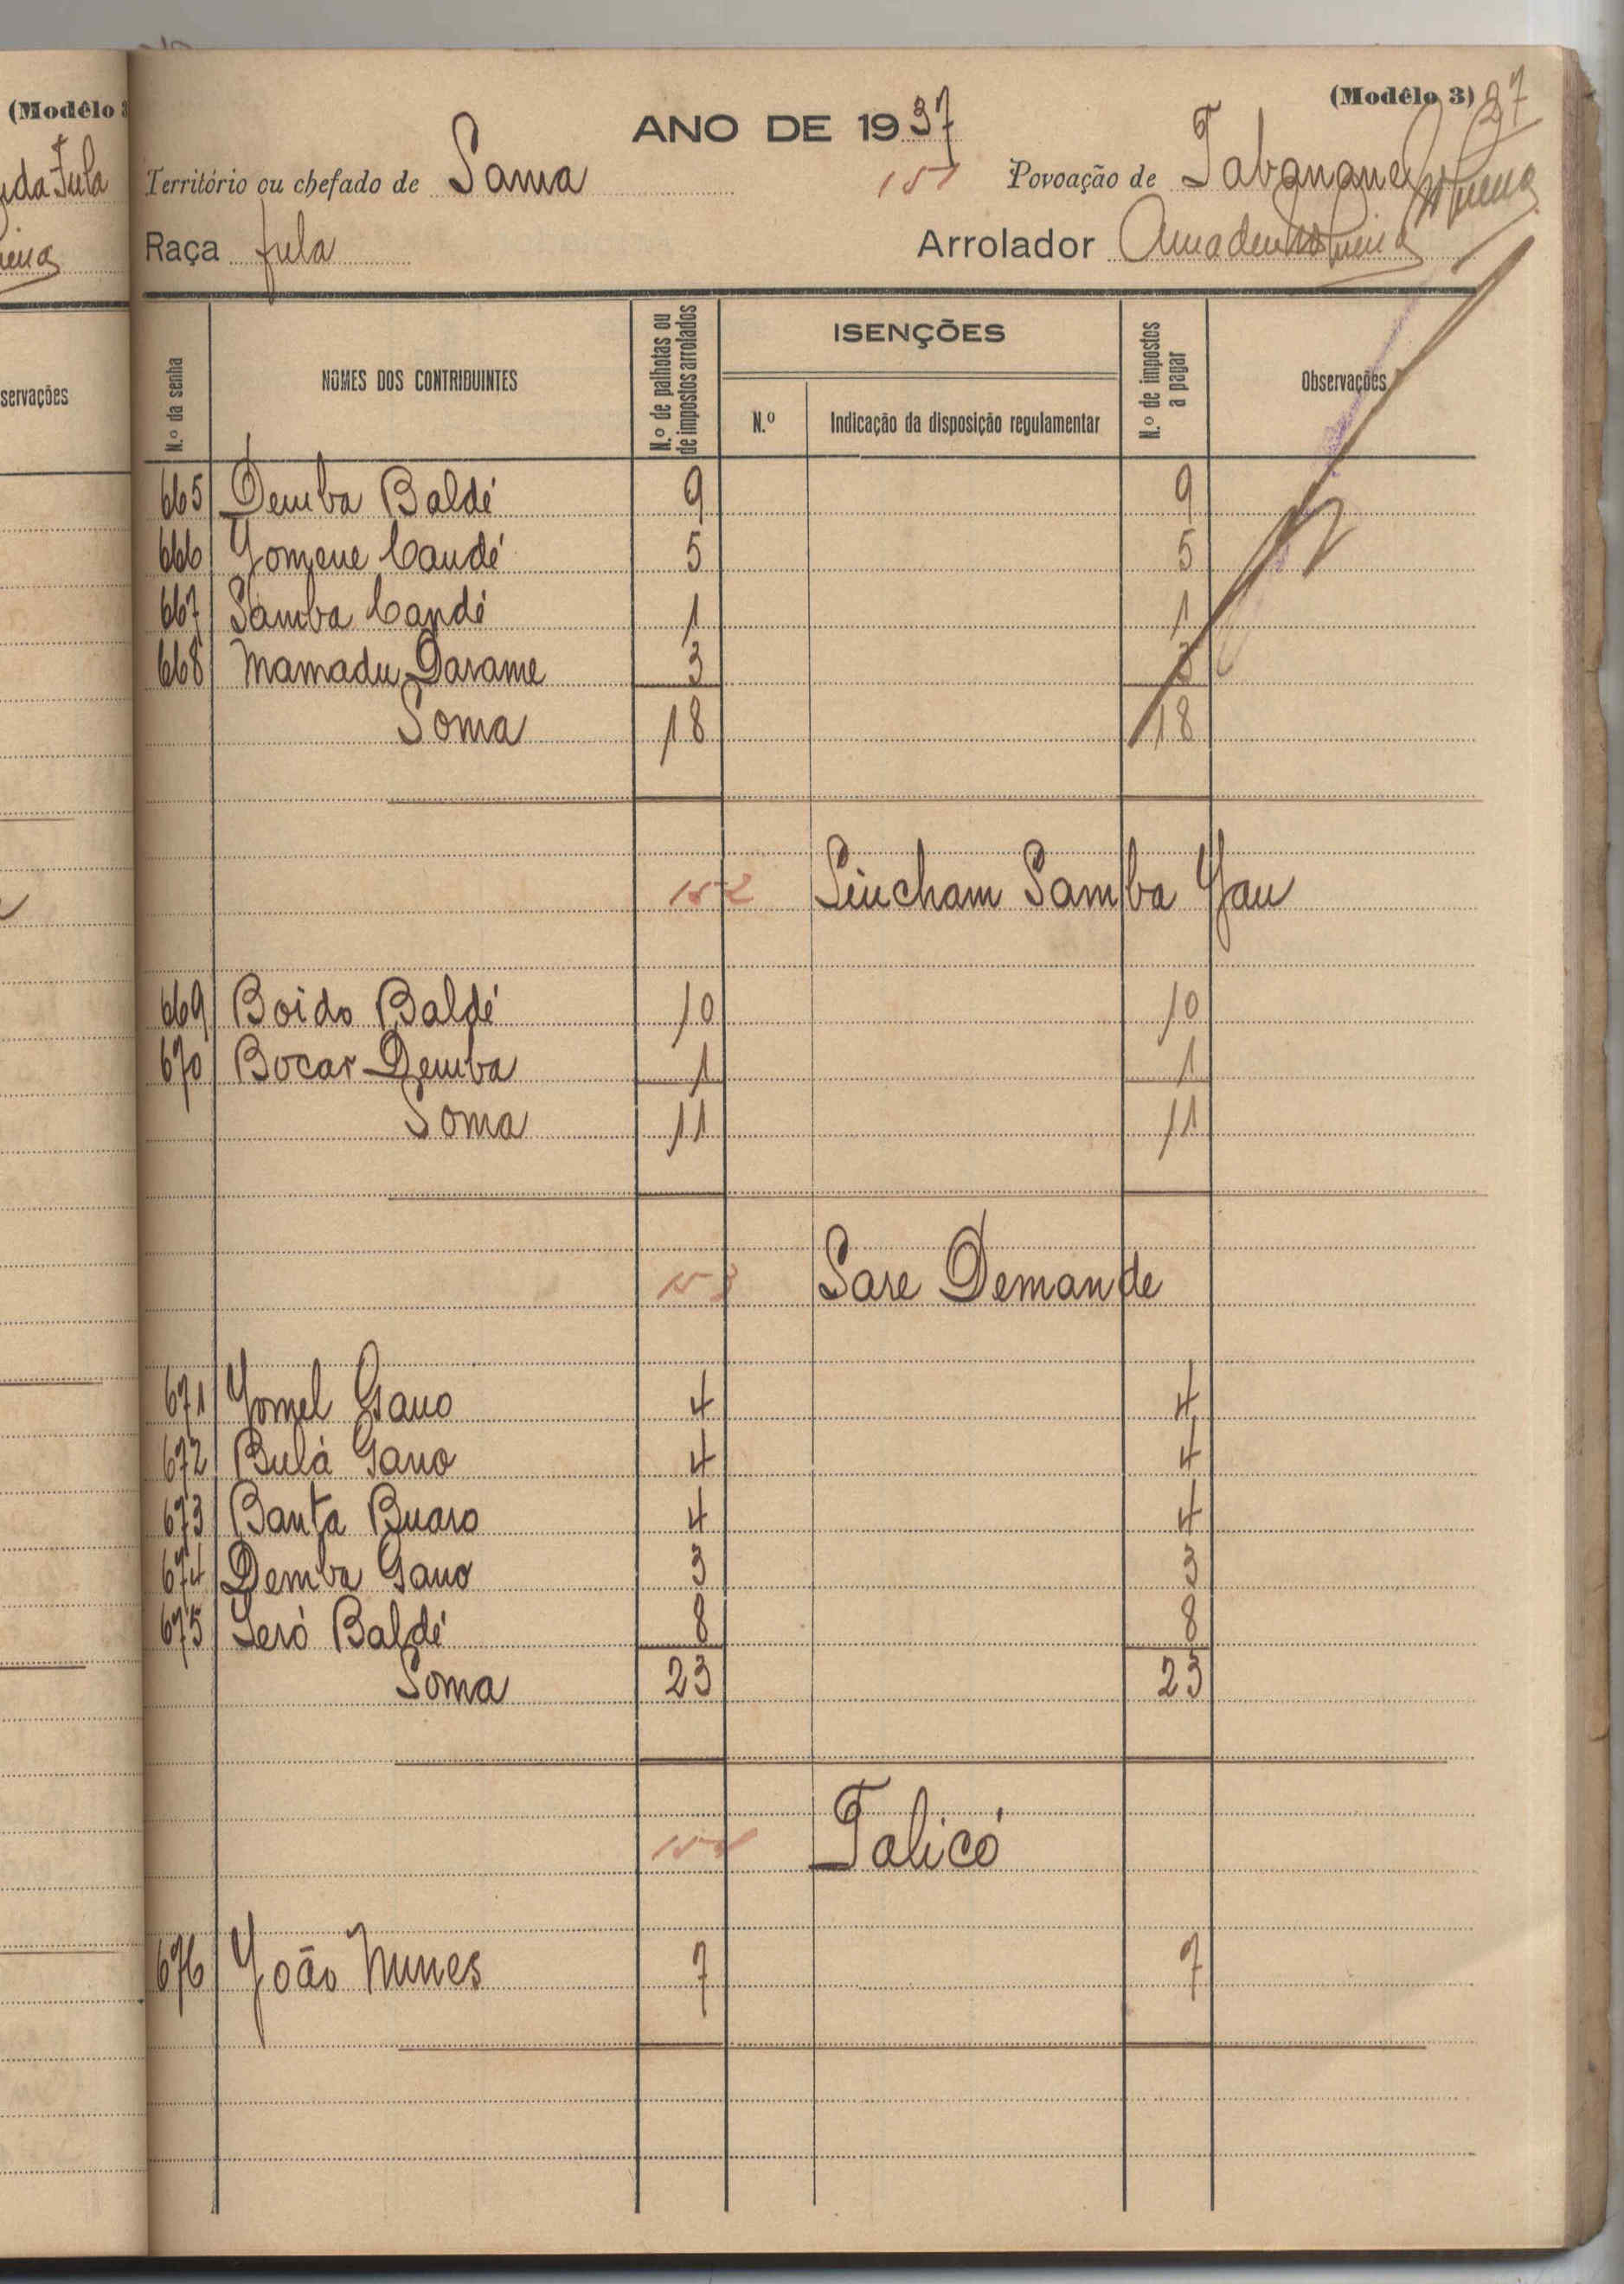 (Modêlo 3
(Modêlo 3) 37
ANO DE 1937
da Fula
Território ou chefado de Sama 151 Povoação de Tabanane
Raça fula Arrolador Amadeu Nogueira
servações
N.º da senha NOMES DOS CONTRIBUINTES N.º de palhotas ou de impostos arrolados ISENÇÕES N.º Indicação da disposição regulamentar N.º de impostos a pagar Observações
665 Demba Baldé 9 9
666 Yomene Candé 5 5
667 Samba Candé 1 1
668 Mamadu Darame 3 3
Soma 18 18
152 Sincham Samba Yau
669 Boido Baldé 10 10
670 Bocar Demba 1 1
Soma 11 11
153 Sare Demande
671 Yomel Gano 4 4
672 Bulá Gano 4 4
673 Banta Buaro 4 4
674 Demba Gano 3 3
675 Seró Baldé 8 8
Soma 23 23
154 Talicó
676 João Nunes 7 7